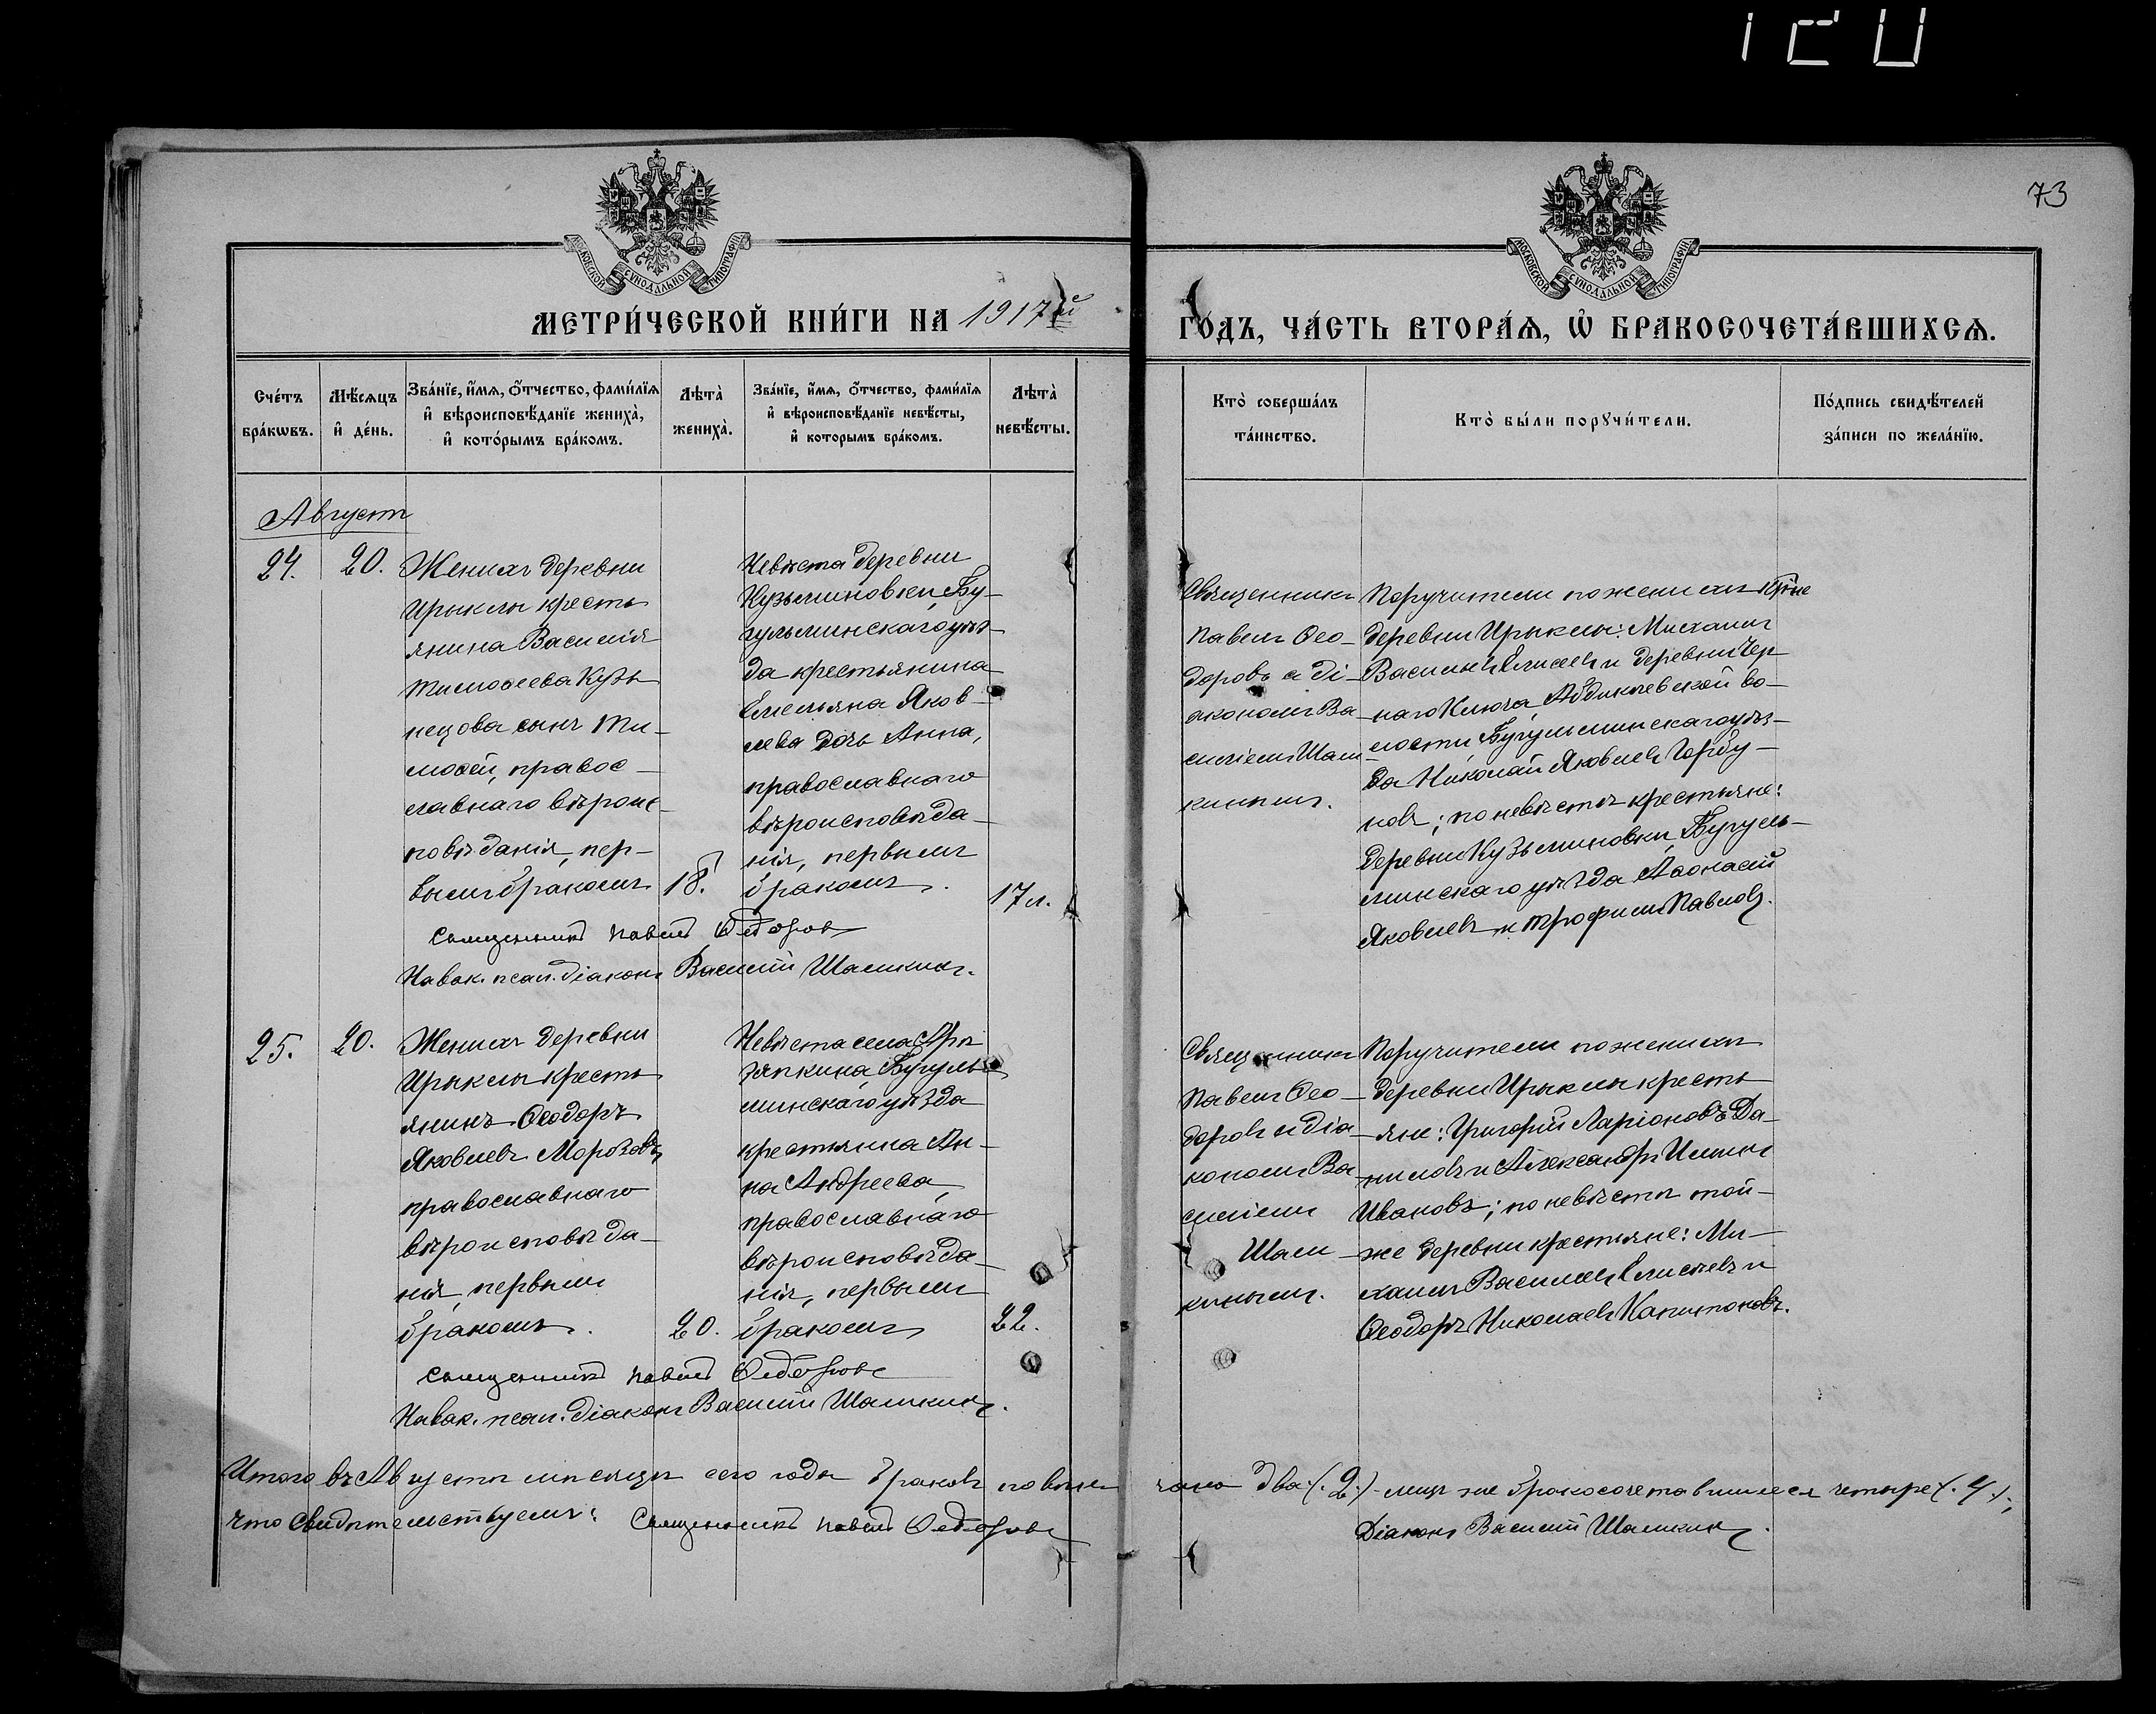 120
73
МОСКОВСКОЙ СѴНОДАЛЬНОЙ ТИПОГРАФІИ
МОСКОВСКОЙ СѴНОДАЛЬНОЙ ТИПОГРАФІИ
МЕТРИ́ЧЕСКОЙ КНИ́ГИ НА 1917й
ГО́ДЪ, ЧА́СТЬ ВТОРА́Ѧ, Ѽ БРАКОСОЧЕТА́ВШИХСѦ.
Сче́тъ бра́кѡвъ.
Мѣ́сяцъ и҆ де́нь.
Зва́нїе, и҆́мѧ, ѻ҆́тчество, фами́лїѧ
и҆ вѣроисповѣ́данїе жениха̀,
и҆ кото́рымъ бра́комъ.
Лѣта̀ жениха̀.
Зва́нїе, и҆́мѧ, ѻ҆́тчество, фами́лїѧ
и҆ вѣроисповѣ́данїе невѣ́сты,
и҆ которымъ бра́комъ.
Лѣта̀ невѣ́сты.
Кто̀ соверша́лъ
та́инство.
Кто̀ бы́ли порꙋчи́тели.
По́дпись свидѣ́телей
за́писи по жела́нїю.
Августъ
24.
20.
Женихъ деревни
Ирыклы кресть
янина Василія
Тимоѳеева Кузь
нецова сынъ Ти-
моѳей, правос-
лавнаго вѣроис-
повѣданія, пер-
вымъ бракомъ
18.
Невѣста деревни
Кузьминовки, Бу-
гульминскаго уѣз-
да крестьянина
Емельяна Яков-
лева дочь Анна,
православнаго
вѣроисповѣда-
нія, первымъ
бракомъ.
17 л.
Священникъ
Павелъ Ѳео-
доровъ с ді-
акономъ Ва-
силіемъ Шаш-
кинымъ.
Поручители по женихѣ кр-не
деревни Ирыклы: Михаилъ
Васильевъ Елисеевъ и деревни Чер
наго Ключа, Абдикеевской во-
лости, Бугульминскаго уѣз-
да Николай Яковлевъ Горбу-
новъ; по невѣстѣ крестьяне:
деревни Кузьминовки, Бугуль-
минскаго уѣзда Аѳонасій
Яковлевъ и Трофимъ Павловъ.
Священникъ Павелъ Ѳедоровъ
На вак. псал. діаконъ Василій Шашкинъ.
25.
20.
Женихъ деревни
Ирыклы кресть
янинъ Ѳеодоръ
Яковлевъ Морозовъ,
православнаго
вѣроисповѣда-
нія, первымъ
бракомъ.
20.
Невѣста села
зяпкина, Бугуль-
минскаго уѣзда
крестьянка Ан-
на Андреева,
православнаго
вѣроисповѣда-
нія, первымъ
бракомъ
22.
Священникъ
Павелъ Ѳео-
доровъ и діа-
кономъ Ва-
силіемъ
Шаш-
кинымъ.
Поручители по женихѣ
деревни Ирыклы кресть-
яне: Григорій Ларіоновъ Да-
ниловъ и Александръ Ильинъ
Ивановъ; по невѣстѣ той-
же деревни крестьяне: Ми-
хаилъ Васильевъ Елисеевъ и
Ѳеодоръ Николаевъ Капитоновъ.
Священникъ Павелъ Ѳедоровъ
На вак. псал. діаконъ Василій Шашкинъ.
Итого въ Августѣ мѣсяцѣ сего года браковъ повѣн-
чано два (.2.) лицъ же бракосочетавшихся четыре (.4.),
что свидѣтельствуемъ: Священникъ Павелъ Ѳедоровъ
Діаконъ Василій Шашкинъ.